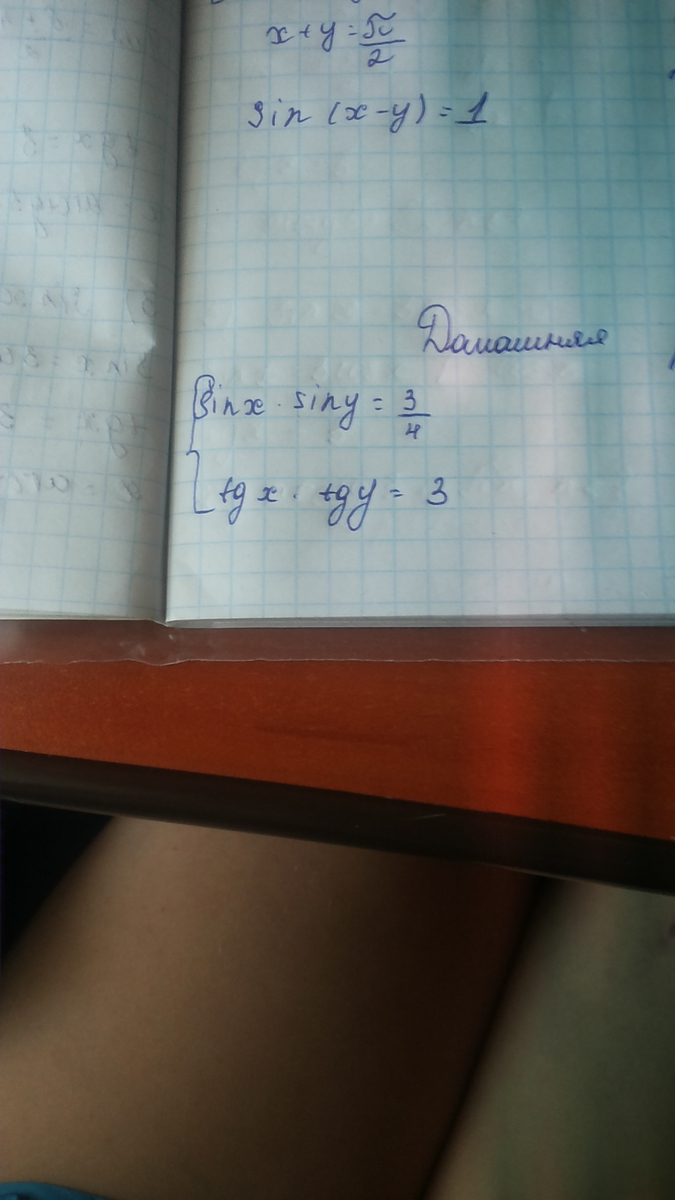 x + y = π/2
sin (x - y) = 1
Домашняя
sin x · sin y = 3/4
tg x · tg y = 3